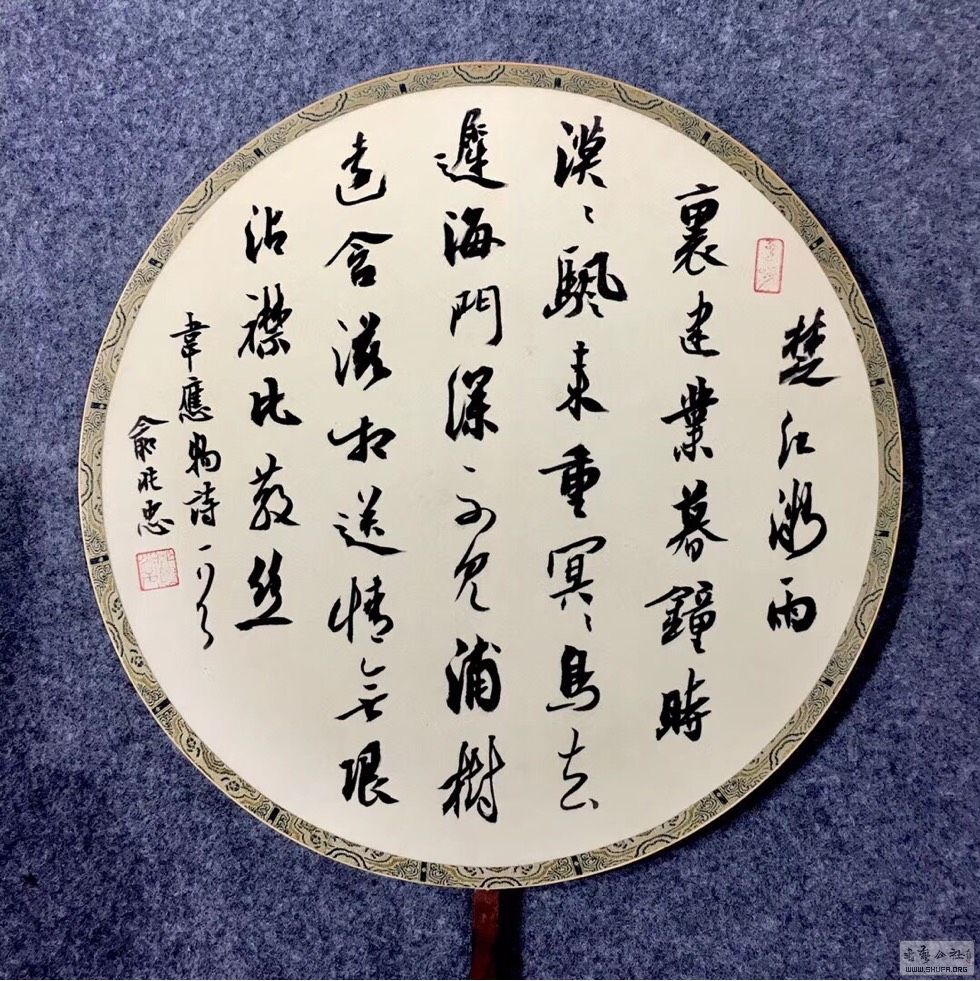 楚江微雨
裏建業暮鐘時
漠〻颿来重冥〻鳥去
遲海門深不見浦樹
遠含滋相送情無限
沾襟比散絲
韋應物詩一首
俞忠
书艺公社
WWW.SHUFA.ORG